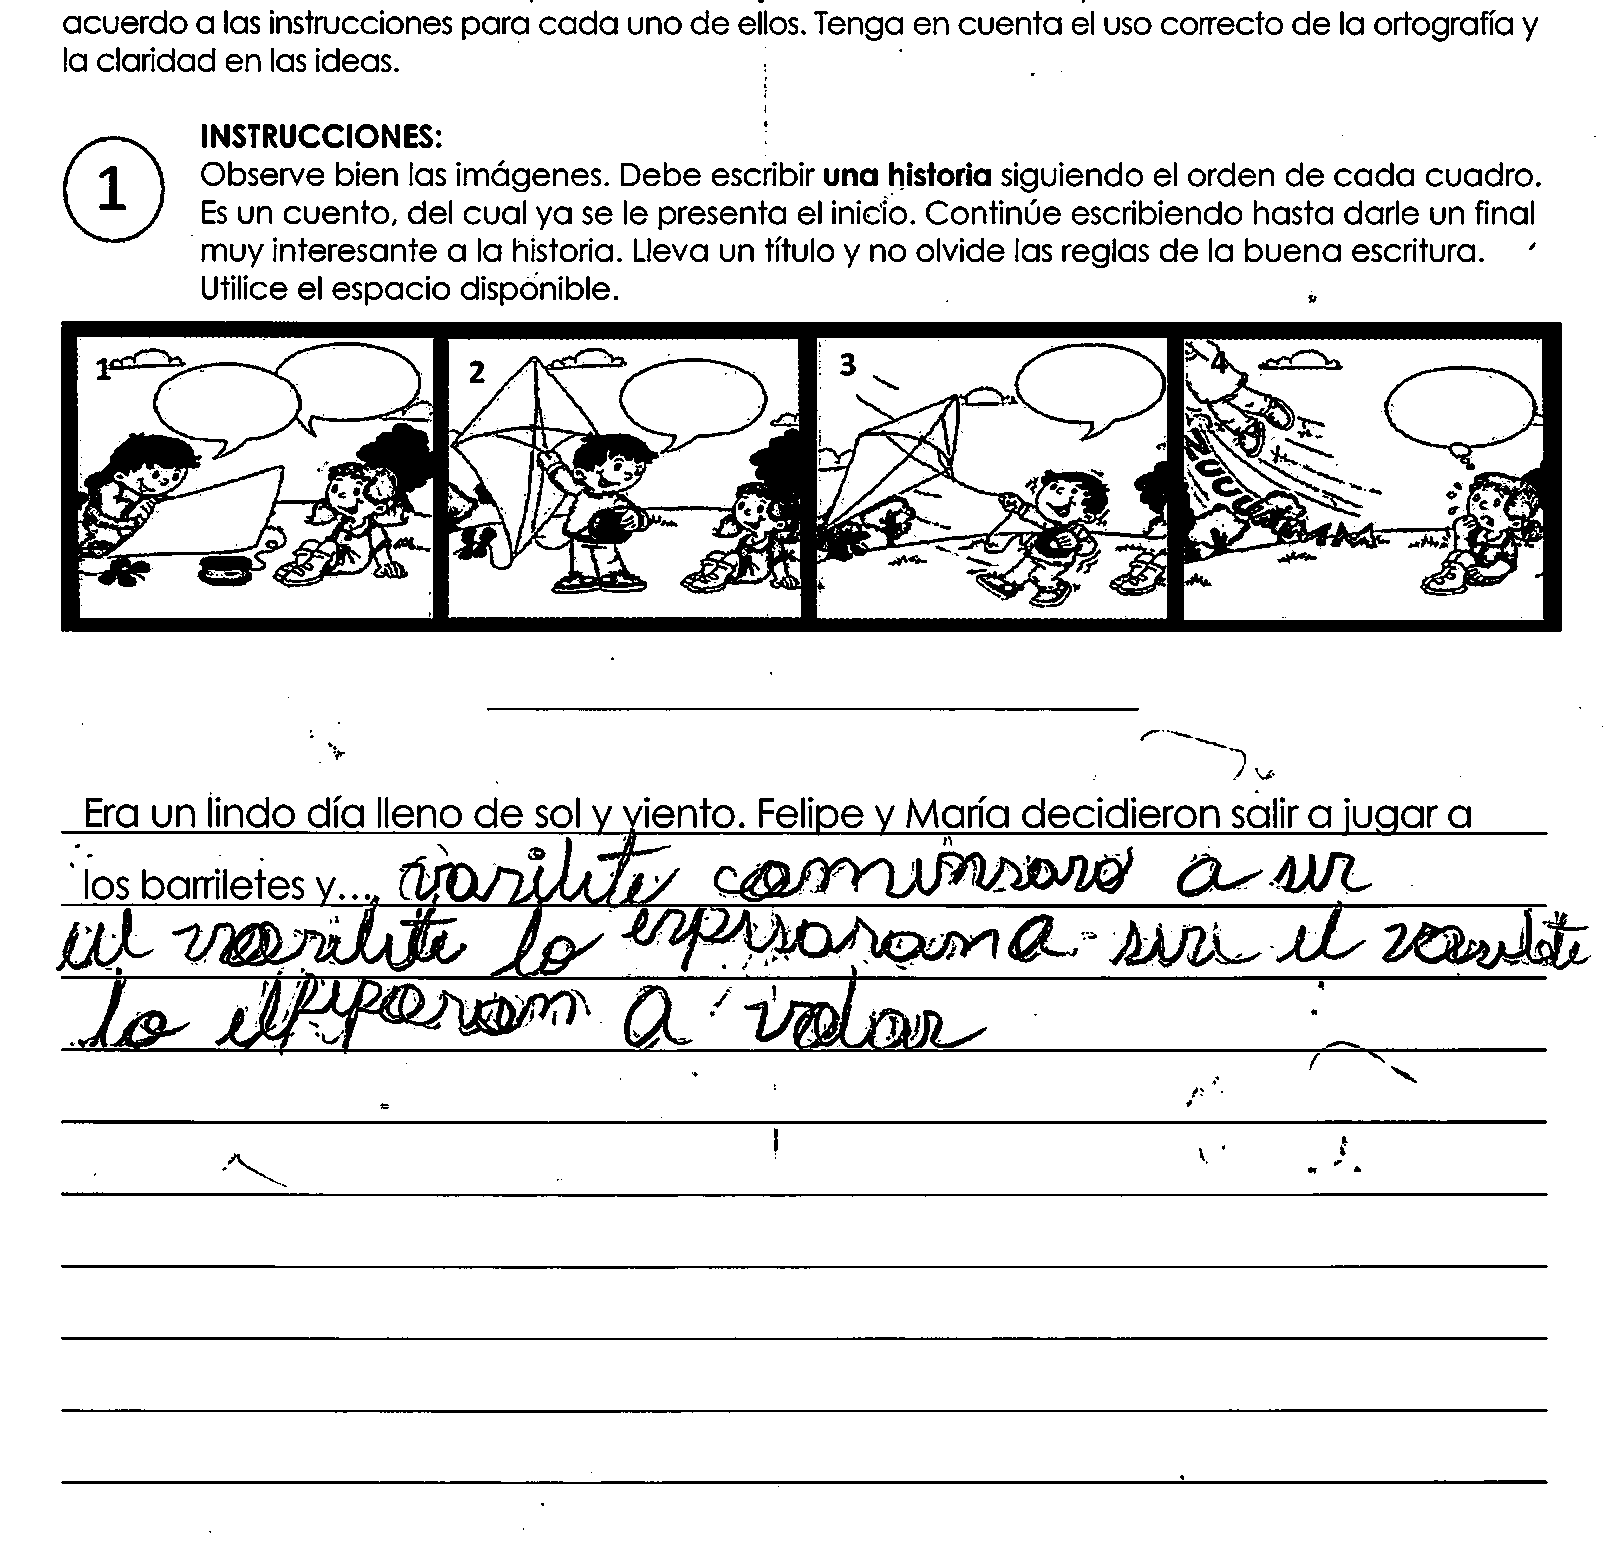 acuerdo a las instrucciones para cada uno de ellos. Tenga en cuenta el uso correcto de la ortografía y
la claridad en las ideas.
1
INSTRUCCIONES:
Observe bien las imágenes. Debe escribir una historia siguiendo el orden de cada cuadro.
Es un cuento, del cual ya se le presenta el inicio. Continúe escribiendo hasta darle un final
muy interesante a la historia. Lleva un título y no olvide las reglas de la buena escritura.
Utilice el espacio disponible.
1 2 3 4
Era un lindo día lleno de sol y viento. Felipe y María decidieron salir a jugar a
los barriletes y..., varilete a
varilete lo a el
lo a volar